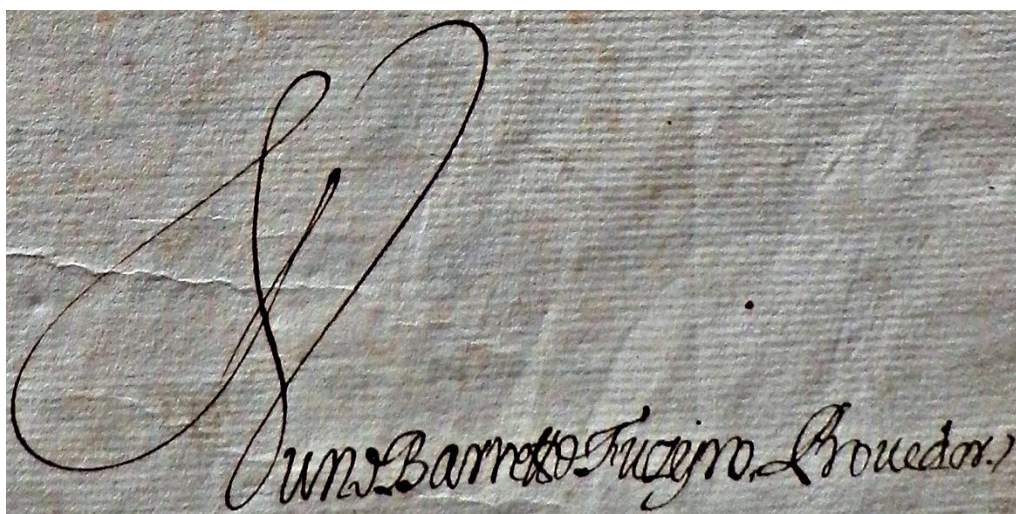 Nuno Barretto Fuzeyro, Prouedor.